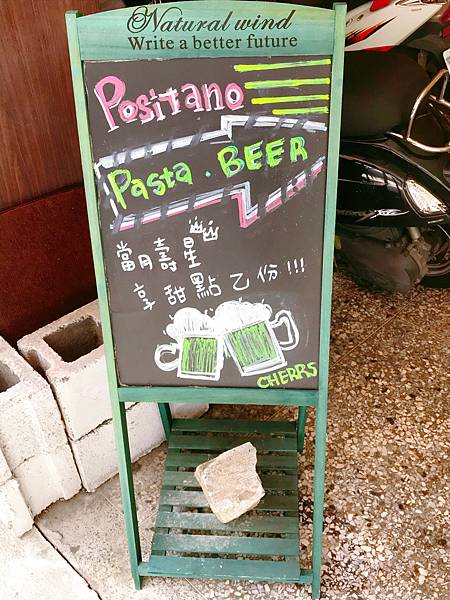 Natural wind
Write a better future
Positano
Pasta · BEER
當月壽星
享甜點乙份!!!
CHERRS